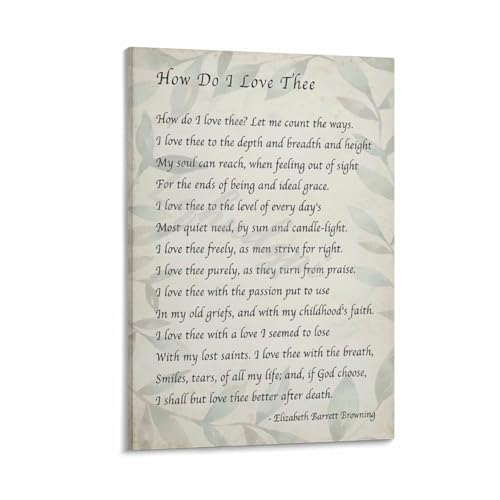 How Do I Love Thee
How do I love thee? Let me count the ways.
I love thee to the depth and breadth and height
My soul can reach, when feeling out of sight
For the ends of being and ideal grace.
I love thee to the level of every day's
Most quiet need, by sun and candle-light.
I love thee freely, as men strive for right.
I love thee purely, as they turn from praise.
I love thee with the passion put to use
In my old griefs, and with my childhood's faith.
I love thee with a love I seemed to lose
With my lost saints. I love thee with the breath,
Smiles, tears, of all my life; and, if God choose,
I shall but love thee better after death.
- Elizabeth Barrett Browning